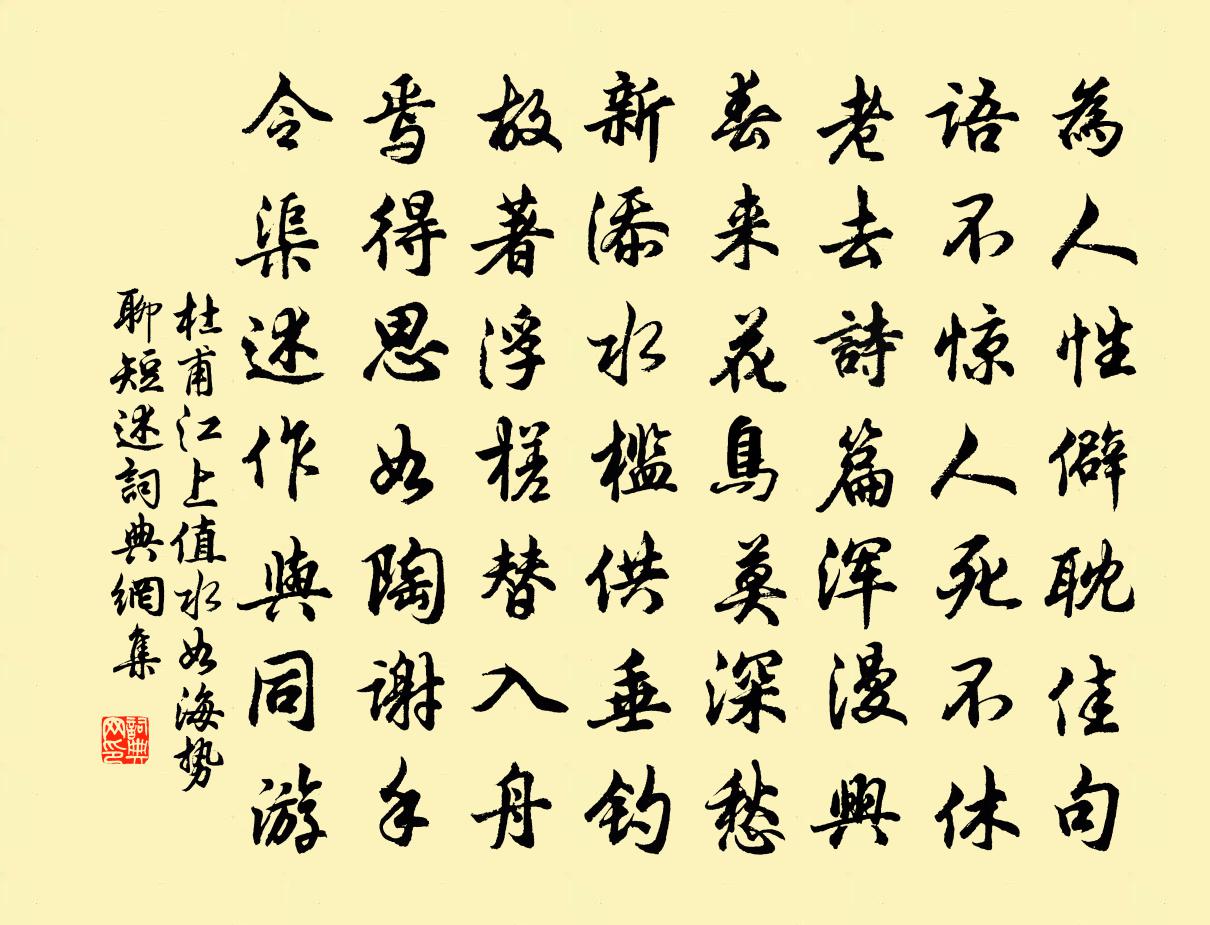 為人性僻耽佳句
語不惊人死不休
老去詩篇渾漫興
春来花鳥莫深愁
新添水檻供垂钓
故著浮槎替入舟
焉得思如陶谢手
令渠述作與同游
杜甫江上值水如海势
聊短述詞典網集
詞典网印